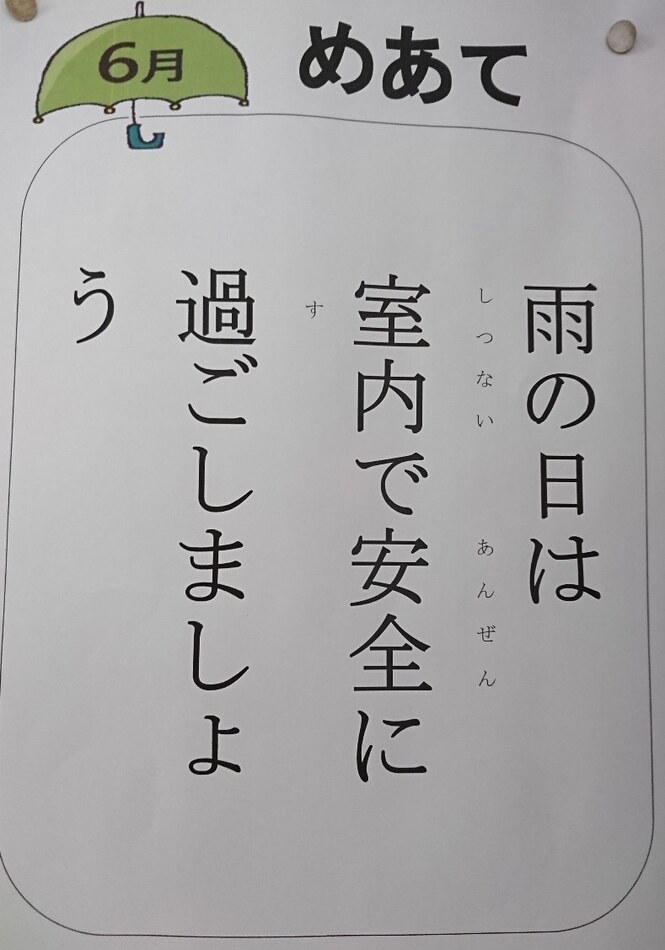 6月
めあて
雨の日は
しつない あんぜん
室内で安全に
す
過ごしましょ
う